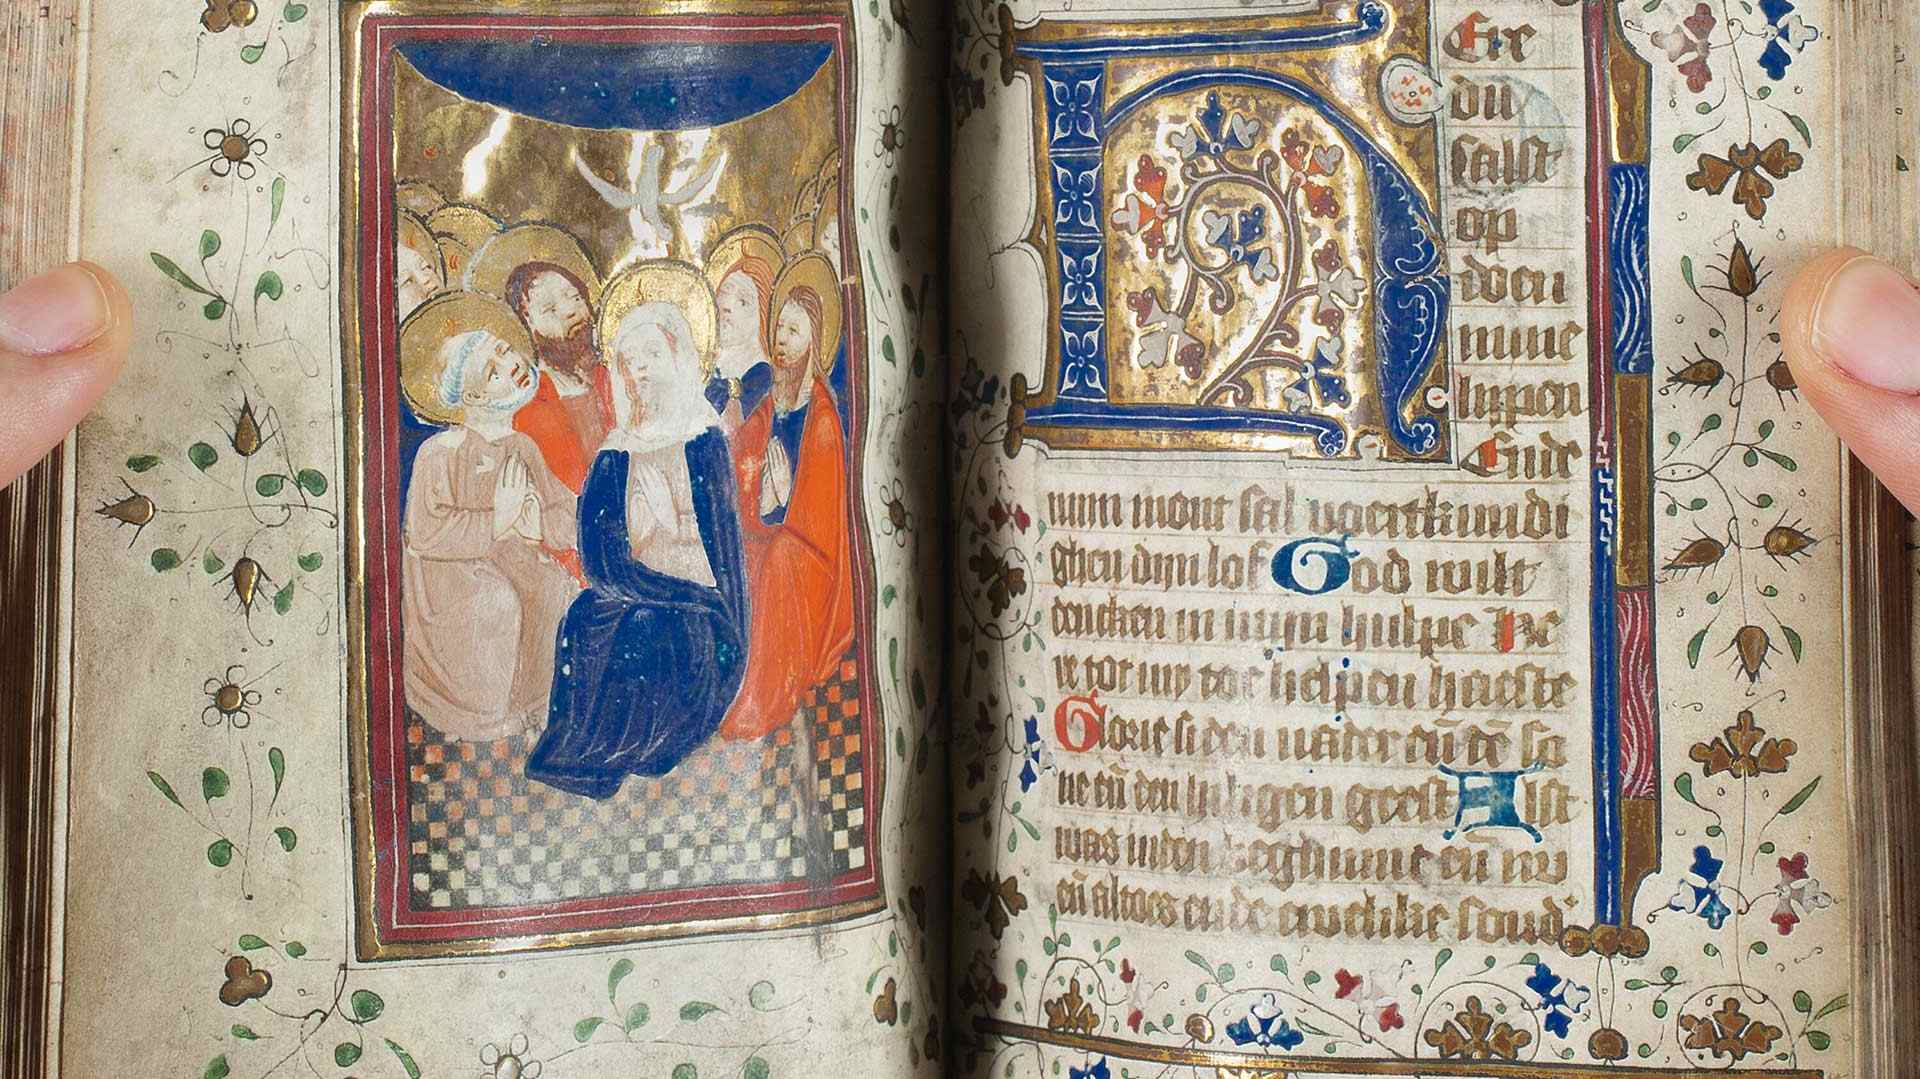 Ere
du
salst
op
doen
mine
lippen
Ende
mijn mont sal voertkundi
ghen dijn lof God wilt
dencken in mijn hulpe He
re tot my toe helpen haeste
Glorie si den uader eñ dē so
ne eñ den heilighen geest Alst
was inden beghinne eñ nv
eñ altoes ende ewelike sond